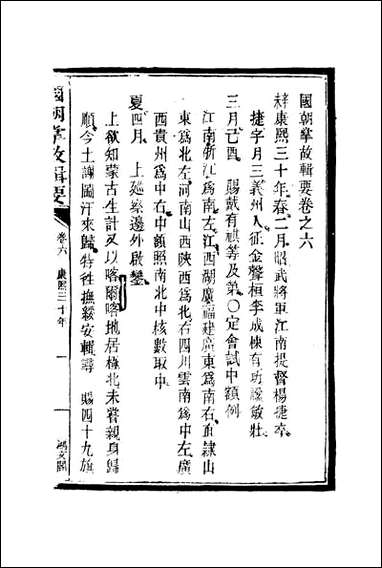 國朝掌故輯要卷之六
辛未康熙三十年春二月昭武將軍江南提督楊捷卒
捷字月三義州人征金聲桓李成棟有功諡敏壯
三月己酉 賜戴有祺等及第〇定會試中額例
江南浙江爲南左江西湖廣福建廣東爲南右直隸山
東爲北左河南山西陝西爲北右四川雲南爲中左廣
西貴州爲中右中額照南北中核數取中
夏四月 上廵察邊外啟鑾
上欲知蒙古生計又以喀爾喀地居極北未嘗親身歸
順今土謝圖汗來歸特往撫綏安輯尋 賜四十九旗
國朝掌故輯要
卷六 康熙三十年 一
鴻文閣